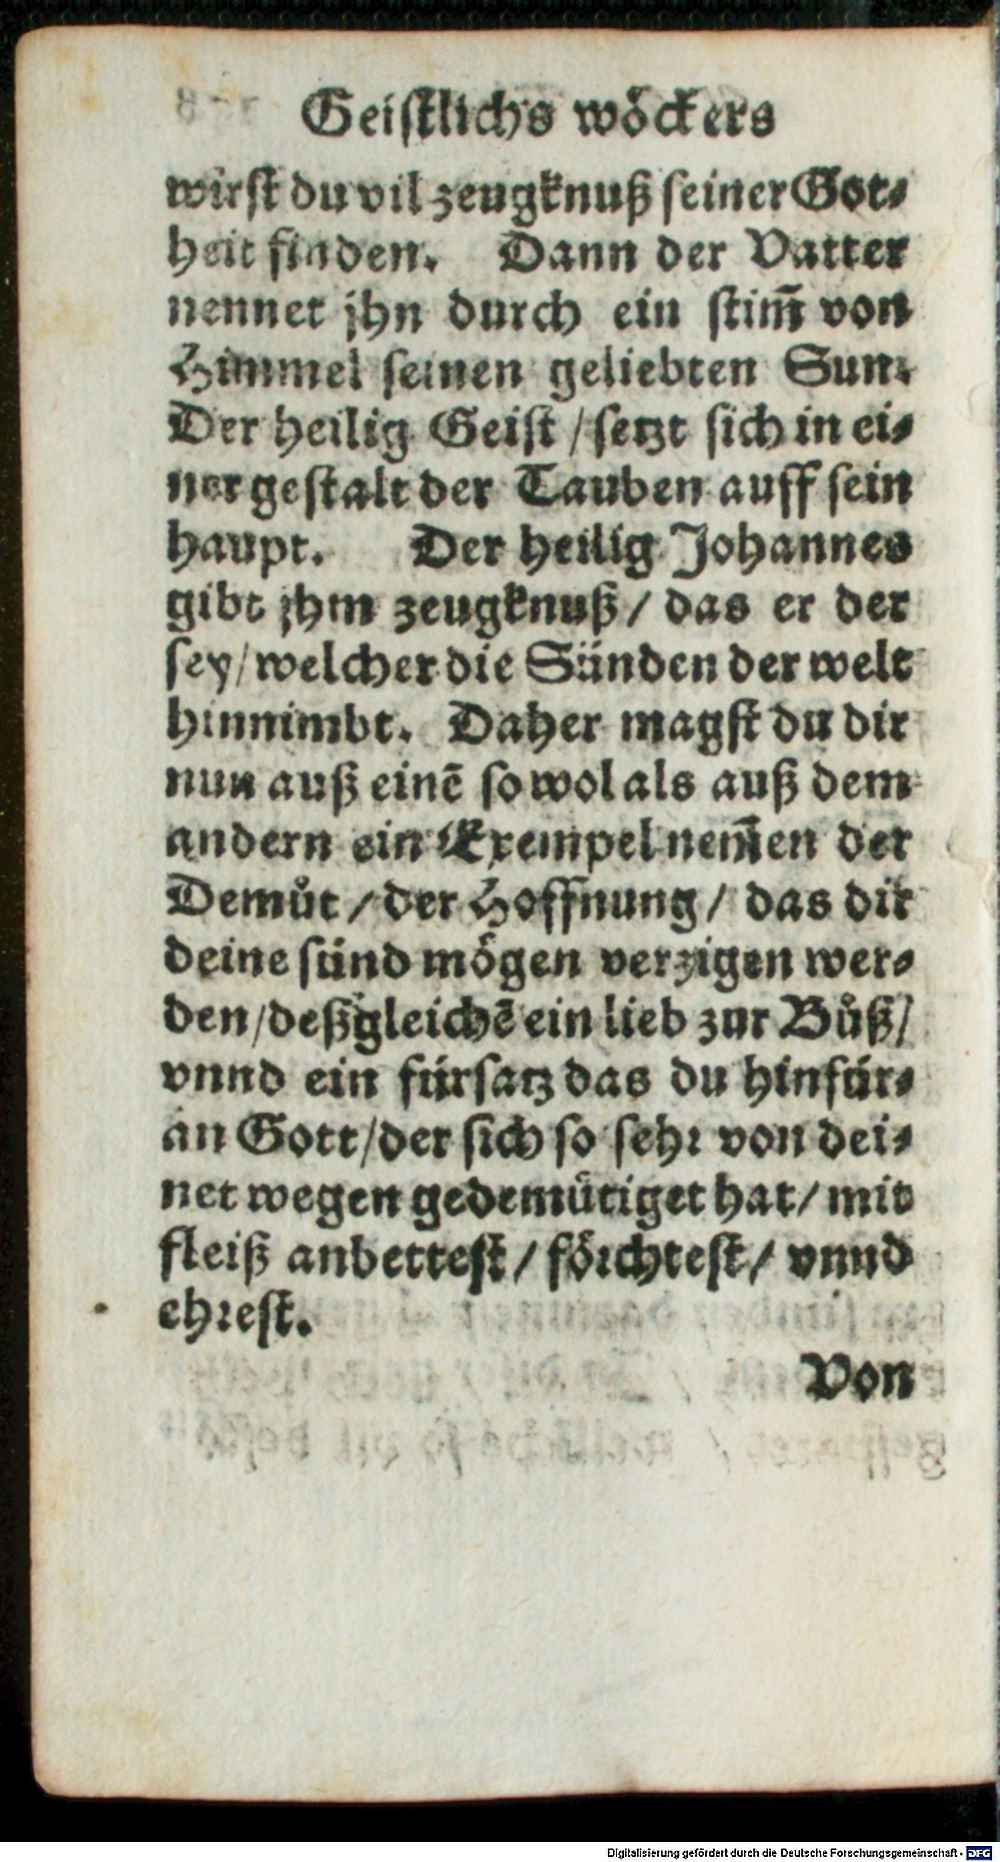 Geistlichs wöckers
wirst du vil zeugknuß seiner Got⸗
heit finden. Dann der Vatter
nennet jhn durch ein stim̄ von
Himmel seinen geliebten Sun.
Der heilig Geist / setzt sich in ei⸗
ner gestalt der Tauben auff sein
haupt. Der heilig Johannes
gibt jhm zeugknuß / das er der
sey / welcher die Sünden der welt
hinnimbt. Daher magst du dir
nun auß einē so wol als auß dem
andern ein Exempel nem̄en der
Demůt / der Hoffnung / das dir
deine sünd mögen verzigen wer⸗
den / deßgleichē ein lieb zur Bůß /
vnnd ein fürsatz das du hinfür⸗
an Gott / der sich so sehr von dei⸗
net wegen gedemütiget hat / mit
fleiß anbettest / förchtest / vnnd
ehrest.
Von
Digitalisierung gefördert durch die Deutsche Forschungsgemeinschaft - DFG